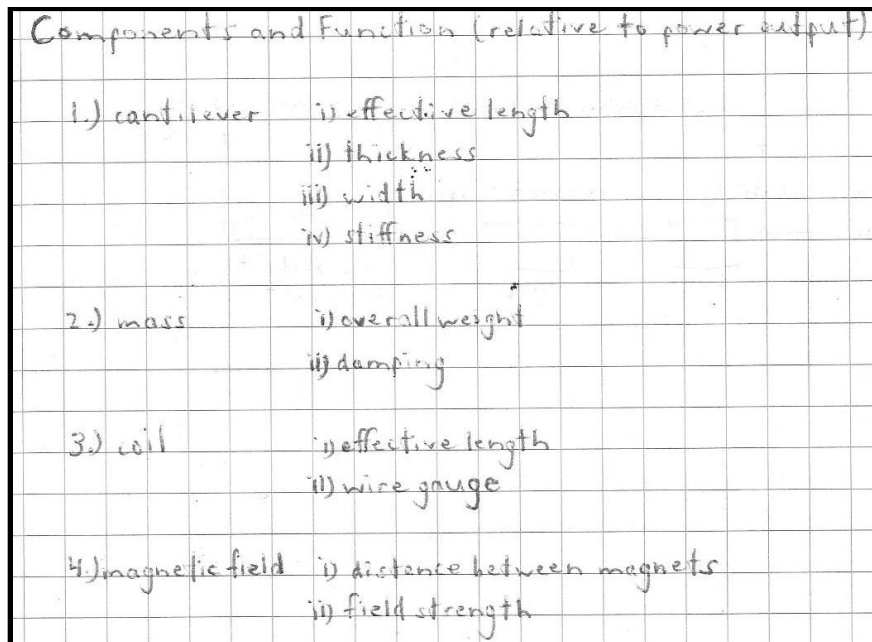 Components and Function (relative to power output)
1.) cantilever i) effective length
ii) thickness
iii) width
iv) stiffness
2.) mass i) overall weight
ii) damping
3.) coil i) effective length
ii) wire gauge
4.) magnetic field i) distance between magnets
ii) field strength